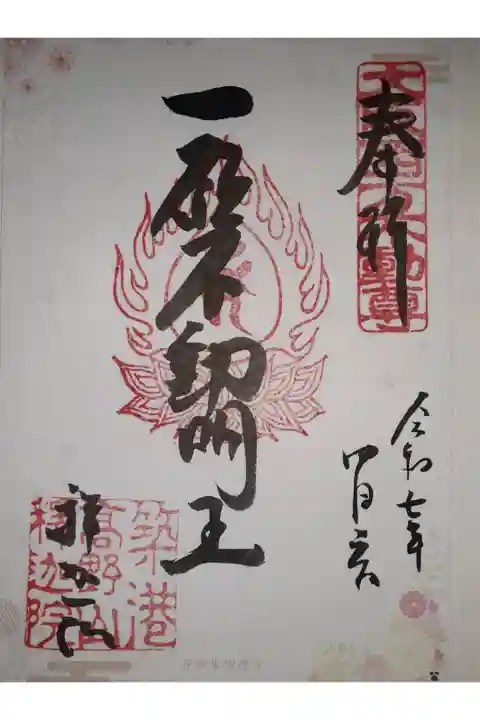 奉拝
一願不動明王
令和七年
四月
釋迦院
築港
高野山
釋迦院